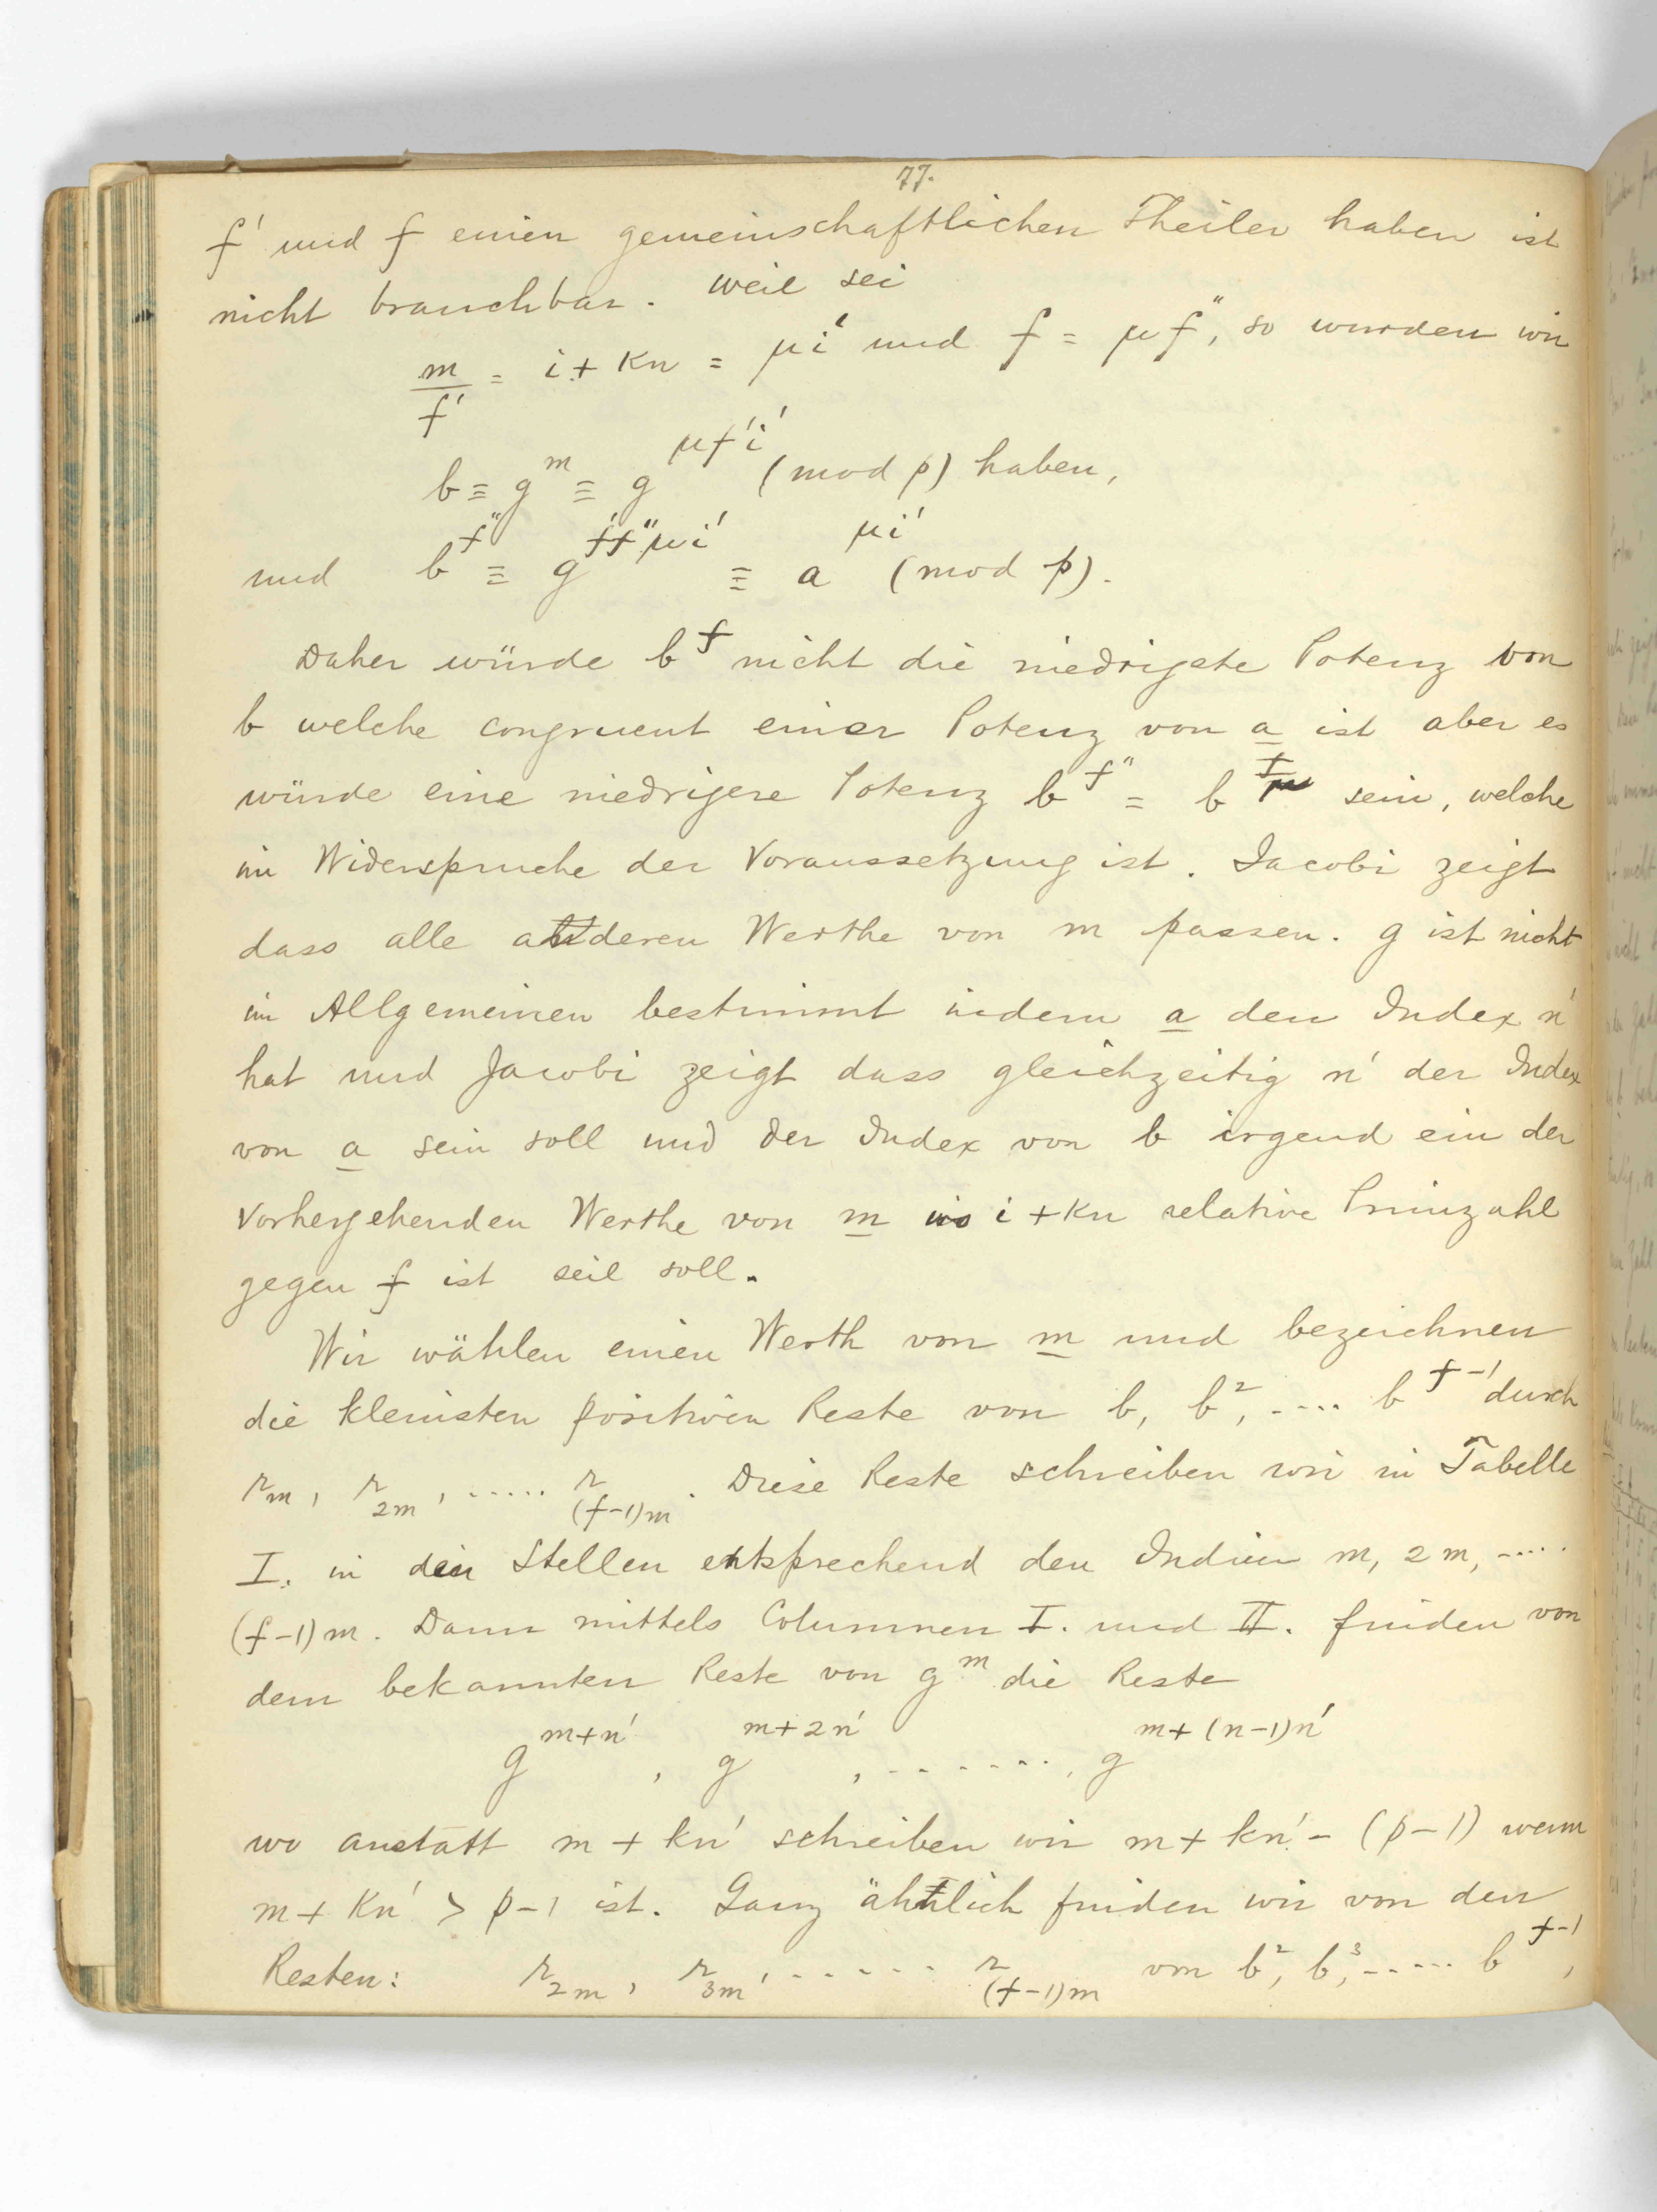 77.
f' und f einen gemeinschaftlichen Theiler haben ist
nicht brauchbar. weil sei
m/f' = i + kn = μi' und f = μf'', so wurden wir
b ≡ g^m ≡ g^{μf'i'} (mod p) haben,
und b^{f''} ≡ g^{f'f''μi'} ≡ a^{μi'} (mod p).
Daher würde b^f nicht die niedrigste Potenz von
b welche congruent einer Potenz von a ist aber es
würde eine niedrigere Potenz b^{f''} = b^{f/μ} sein, welche
im Widerspruche der Voraussetzung ist. Jacobi zeigt
dass alle anderen Werthe von m passen. g ist nicht
im Allgemeinen bestimmt indem a den Index n'
hat und Jacobi zeigt dass gleichzeitig n' der Index
von a sein soll und der Index von b irgend ein der
vorhergehenden Werthe von m wo i + kn relative Primzahl
gegen f ist seil soll.
Wir wählen einen Werth von m und bezeichnen
die kleinsten positiven Reste von b, b^2, .... b^{f-1} durch
r_m, r_{2m}, ..... r_{(f-1)m}. Diese Reste schreiben wir in Tabelle
I. in den Stellen entsprechend den Indicien m, 2m, .....
(f-1)m. Dann mittels Columnen I. und II. finden von
dem bekannten Reste von g^m die Reste
g^{m+n'}, g^{m+2n'}, ........, g^{m+(n-1)n'}
wo anstatt m + kn' schreiben wir m + kn' - (p-1) wenn
m + kn' > p-1 ist. Ganz ähnlich finden wir von den
Resten: r_{2m}, r_{3m}, ...... r_{(f-1)m} von b^2, b^3, ..... b^{f-1},